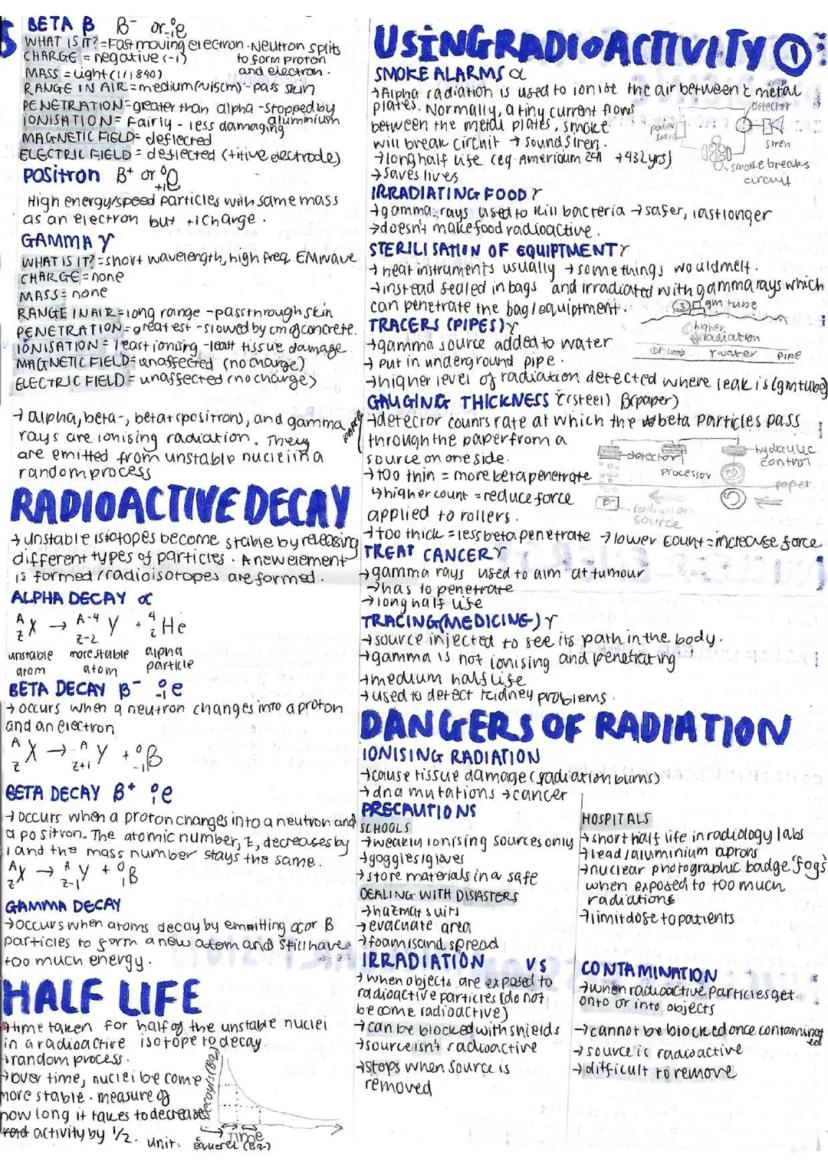 BETA β β⁻ or ⁰₋₁e
WHAT IS IT? = Fast moving electron. Neutron splits
to form proton
and electron.
CHARGE = negative (-1)
MASS = Light (1/1840)
RANGE IN AIR = medium - pass skin
PENETRATION = greater than alpha - stopped by
aluminium
IONISATION = Fairly - less damaging
MAGNETIC FIELD = deflected
ELECTRIC FIELD = deflected (+itive electrode)
POSITRON β⁺ or ⁰₊₁e
High energy/speed particles with same mass
as an electron but +1 charge.
GAMMA γ
WHAT IS IT? = short wavelength, high freq EM wave
CHARGE = none
MASS = none
RANGE IN AIR = long range - pass through skin
PENETRATION = greatest - slowed by cm of concrete.
IONISATION = least ionising - least tissue damage
MAGNETIC FIELD = unaffected (no charge)
ELECTRIC FIELD = unaffected (no charge)
→ alpha, beta-, beta+ (positrons), and gamma
rays are ionising radiation. They
are emitted from unstable nuclei in a
random process
RADIOACTIVE DECAY
→ Unstable isotopes become stable by releasing
different types of particles. A new element
is formed/radioisotopes are formed.
ALPHA DECAY α
ᴬ_Z X → ᴬ⁻⁴_Z-2 Y + ⁴₂He
unstable atom more stable atom alpha particle
BETA DECAY β⁻ ⁰₋₁e
→ occurs when a neutron changes into a proton
and an electron
ᴬ_Z X → ᴬ_Z+1 Y + ⁰₋₁β
BETA DECAY β⁺ ⁰₁e
→ occurs when a proton changes into a neutron and
a positron. The atomic number, Z, decreases by
1 and the mass number stays the same.
ᴬ_Z X → ᴬ_Z-1 Y + ⁰₁β
GAMMA DECAY
→ occurs when atoms decay by emitting α or β
particles to form a new atom and still have
too much energy.
HALF LIFE
→ time taken for half of the unstable nuclei
in a radioactive isotope to decay
→ random process.
→ over time, nuclei become
more stable. measure of
how long it takes to decrease
activity by 1/2. unit:
(Bq)
Time
USING RADIOACTIVITY ①
SMOKE ALARMS α
→ Alpha radiation is used to ionise the air between 2 metal
plates. Normally, a tiny current flows
between the metal plates, smoke
will break circuit → sound siren.
→ long half life (eg. Americium 241 → 432 yrs)
→ saves lives
detector
siren
smoke breaks
circuit
IRRADIATING FOOD γ
→ gamma rays used to kill bacteria → safer, last longer
→ doesn't make food radioactive.
STERILISATION OF EQUIPTMENT γ
→ heat instruments usually → some things would melt.
→ instead sealed in bags and irradiated with gamma rays which
can penetrate the bag/equiptment.
TRACERS (PIPES) γ
→ gamma source added to water
→ put in underground pipe.
→ higher level of radiation detected where leak is (gm tube)
gm tube
higher
radiation
γ water pipe
GAUGING THICKNESS γ (steel) β (paper)
PAPER
→ detector counts rate at which the beta particles pass
through the paper from a
source on one side.
→ too thin = more beta penetrate
↳ higher count = reduce force
applied to rollers.
→ too thick = less beta penetrate → lower count = increase force
detector
hydraulic
control
processor
paper
radiation
source
TREAT CANCER γ
→ gamma rays used to aim at tumour
→ has to penetrate
→ long half life
TRACING (MEDICINE) γ
→ source injected to see its path in the body.
→ gamma is not ionising and penetrating
→ medium half life
→ used to detect kidney problems.
DANGERS OF RADIATION
IONISING RADIATION
→ cause tissue damage (radiation burns)
→ dna mutations → cancer
PRECAUTIONS
SCHOOLS
→ weakly ionising sources only
→ goggles/gloves
→ store materials in a safe
DEALING WITH DISASTERS
→ hazmat suits
→ evacuate area
→ foam is and spread
HOSPITALS
→ short half life in radiology labs
→ lead/aluminium aprons
→ nuclear photographic badge 'fogs'
when exposed to too much
radiations
→ limit dose to patients
IRRADIATION VS
→ when objects are exposed to
radioactive particles (do not
become radioactive)
→ can be blocked with shields
→ source isn't radioactive
→ stops when source is
removed
CONTAMINATION
→ when radioactive particles get
onto or into objects
→ cannot be blocked once contaminated
→ source is radioactive
→ difficult to remove